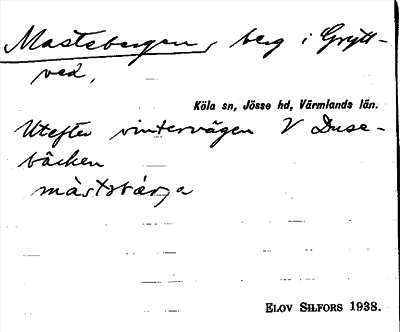 Mastsbergen, berg i Grytt-
ved,
Köla sn, Jösse hd, Värmlands län.
Utefter vintervägen V Duse-
bäcken
ELOV SILFORS 1938.